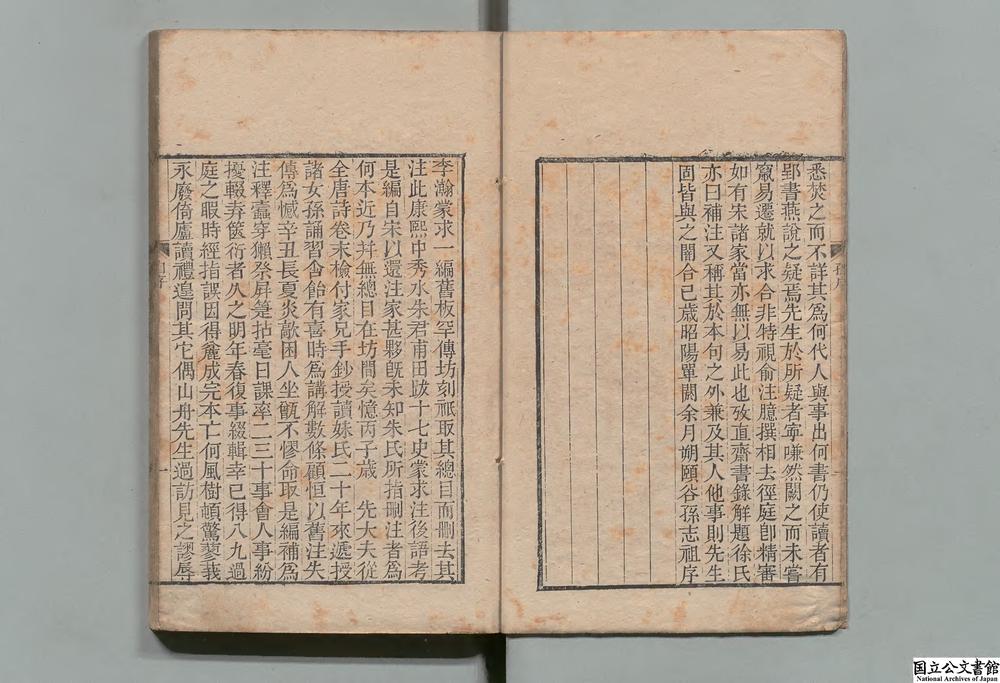 悉焚之而不詳其為何代人與事出何書仍使讀者有
郢書燕說之疑焉先生於所疑者寧嗛然闕之而未嘗
竄易遷就以求合非特視俞注臆撰相去徑庭卽精審
如有宋諸家當亦無以易此也攷直齋書錄解題徐氏
亦曰補注又稱其於本句之外兼及其人他事則先生
固皆與之闇合已歲昭陽單閼余月朔頤谷孫志祖序
李瀚蒙求一編舊板罕傳坊刻祇取其總目而刪去其
注此康熙中秀水朱君甫田跋十七史蒙求注後語考
是編自宋以還注家甚夥旣未知朱氏所指刪注者為
何本近乃并無總目在坊間矣憶丙子歲 先大夫從
全唐詩卷末檢付家兄手鈔授讀妹氏二十年來遞授
諸女孫誦習含飴有喜時為講解數條顧恒以舊注失
傳為憾辛丑長夏炎歊困人坐甑不憀命取是編補為
注釋蠹穿獺祭屛箑拈毫日課率二三十事會人事紛
擾輟弆篋衍者久之明年春復事綴輯幸已得八九過
庭之暇時經指誤因得麄成完本亡何風樹頓驚蓼莪
永廢倚廬讀禮遑問其它偶山舟先生過訪見之謬辱
一
国立公文書館
National Archives of Japan